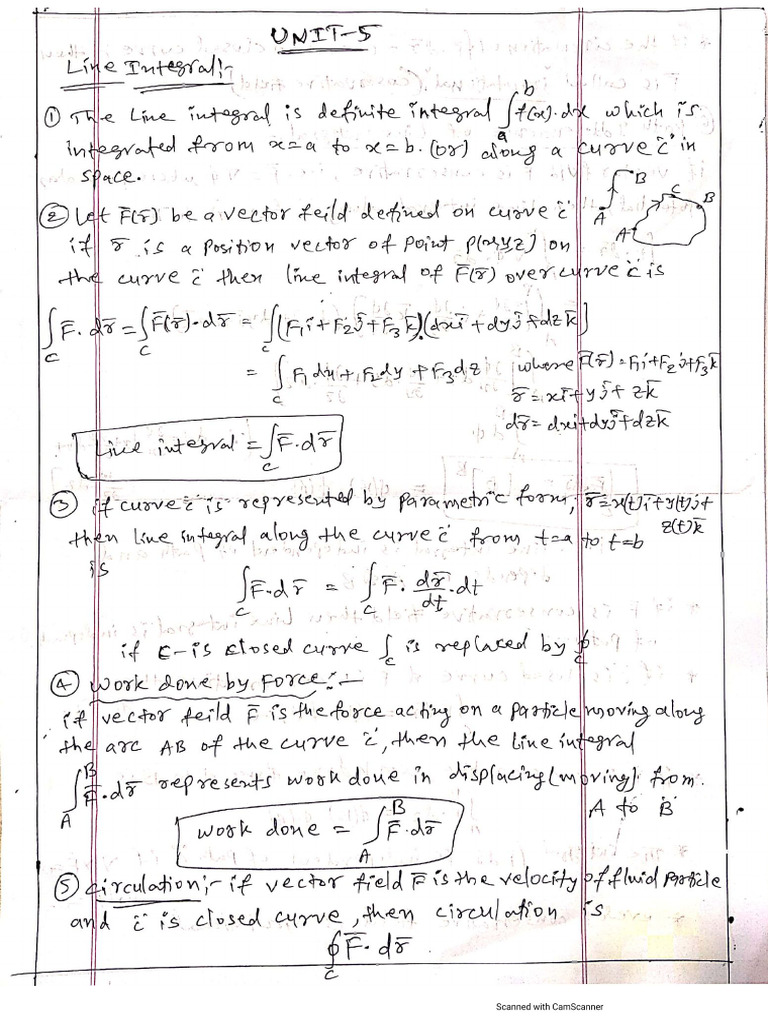 UNIT-5
Line Integral:-
① The Line integral is definite integral ∫ₐᵇ f(x).dx which is
integrated from x=a to x=b. (or) along a curve 'c' in
space.
② Let F̄(r̄) be a vector feild defined on curve 'c'
if r̄ is a position vector of point p(xyz) on
the curve 'c' then line integral of F̄(r̄) over curve 'c' is
A B
A C B
∫_C F̄.dr̄ = ∫_C F̄(r̄).dr̄ = ∫_C (F₁ī+F₂j̄+F₃k̄).(dxī+dyj̄+dzk̄)
= ∫_C F₁dx+F₂dy+F₃dz where F̄(r̄)=F₁i+F₂j+F₃k̄
r̄=xī+yj̄+zk̄
dr̄=dxi+dyj̄+dzk̄
Line integral = ∫_C F̄.dr̄
③ if curve 'c' is represented by parametric form, r̄=x(t)ī+y(t)j+
z(t)k̄
then line integral along the curve 'c' from t=a to t=b
is
∫_C F̄.dr̄ = ∫_C F̄. dr̄/dt .dt
if C-is closed curve ∫_C is replaced by ∮_C
④ work done by Force:-
if vector feild F̄ is the force acting on a particle moving along
the arc AB of the curve 'c', then the line integral
∫_A^B F̄.dr̄ represents work done in displacing(moving) from
A to B
work done = ∫_A^B F̄.dr̄
⑤ circulation:- if vector field F̄ is the velocity of fluid particle
and 'c' is closed curve, then circulation is
∮_C F̄.dr̄
Scanned with CamScanner